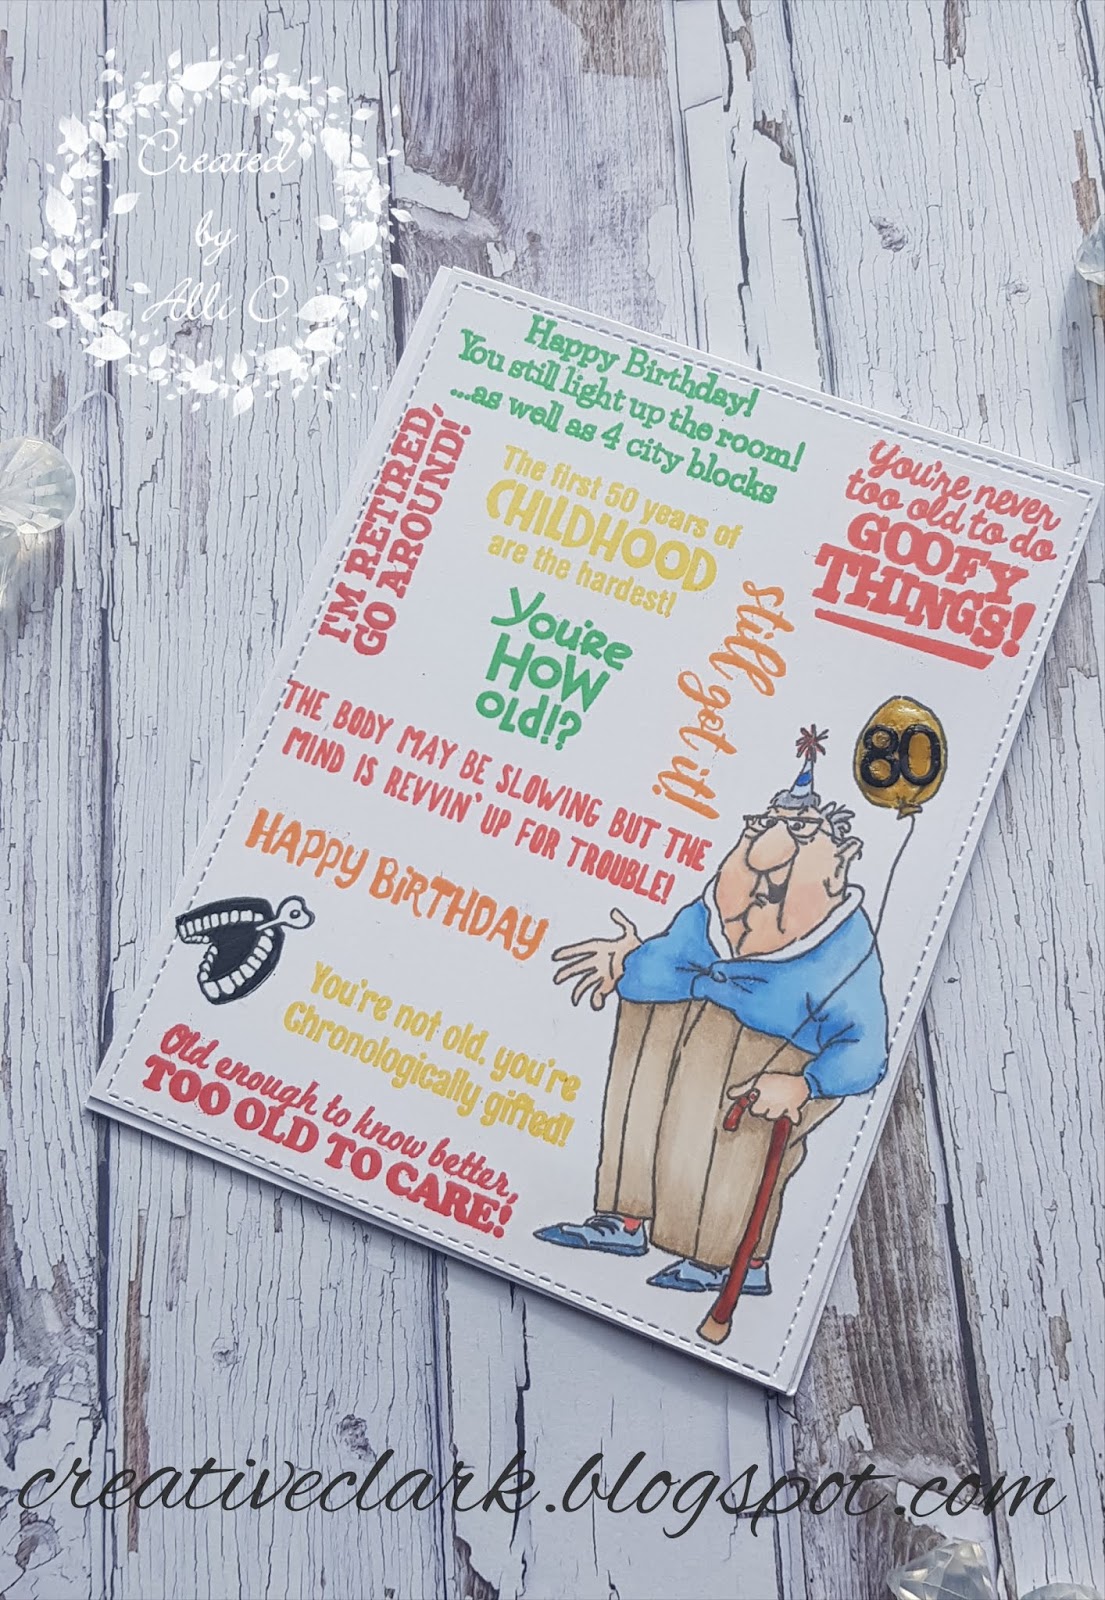 Created
by
Alli C
Happy Birthday!
You still light up the room!
...as well as 4 city blocks
I'M RETIRED,
GO AROUND!
The first 50 years of
CHILDHOOD
are the hardest!
You're never
too old to do
GOOFY
THINGS!
You're
HOW
old!?
still got it!
THE BODY MAY BE SLOWING BUT THE
MIND IS REVVIN' UP FOR TROUBLE!
80
HAPPY BIRTHDAY
You're not old, you're
Chronologically gifted!
Old enough to know better,
TOO OLD TO CARE!
creativeclark.blogspot.com